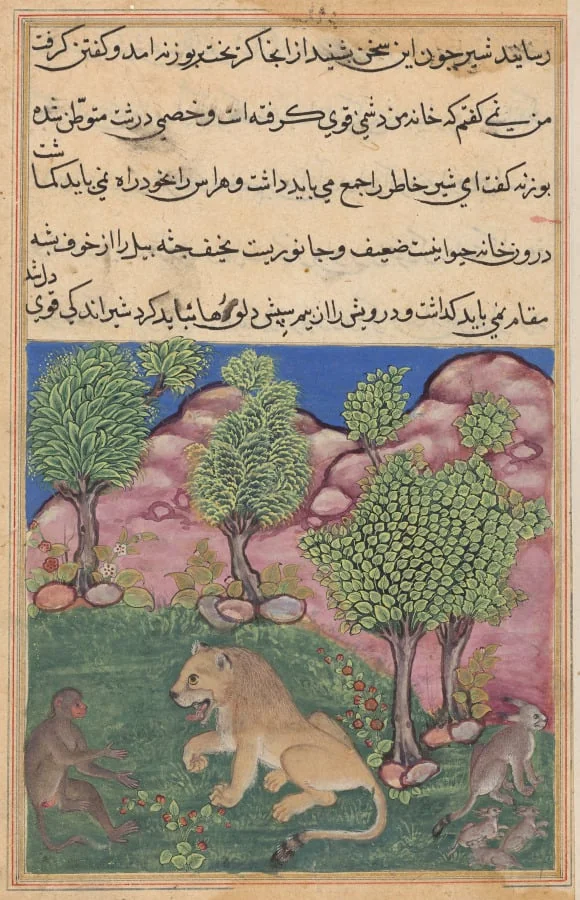 رسانید شیر چون این سخن بشنید از انجا کریخت بر بوزنه امد و کفتن کرفت
من نے کفتم که خانه من دشمنی قوی کرفته است و خصمی درشت متوطن شده
بوزنه کفت ای شیر خاطر را جمع می باید داشت و هراس را بخود راه نمی باید کماشت
درون خانه حیوانیست ضعیف و جانوریست نحیف جثه پیل را از خوف پشه دل شد
مقام نمی باید کداشت و درویش را از بیم سپش دلورها نباید کرد شیر اندکی قوی